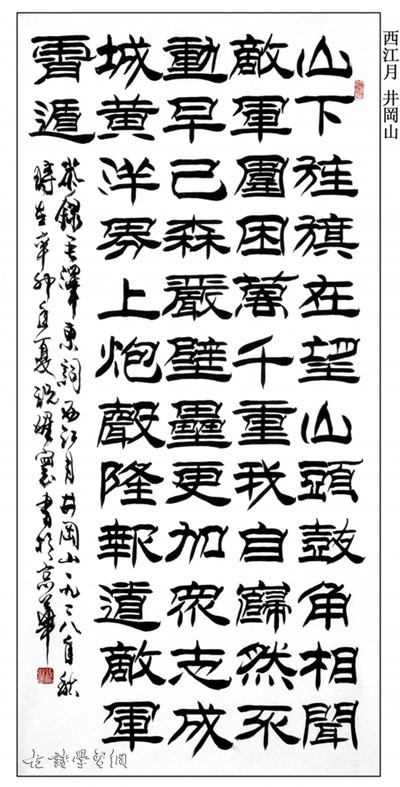 西江月 井岡山
山下旌旗在望山頭鼓角相聞
敵軍圍困萬千重我自巋然不
動早已森嚴壁壘更加衆志成
城黃洋界上炮聲隆報道敵軍
霄遁
恭錄毛澤東詞西江月井岡山一九二八年秋
時在辛卯年夏祝書於京華
古詩學習網